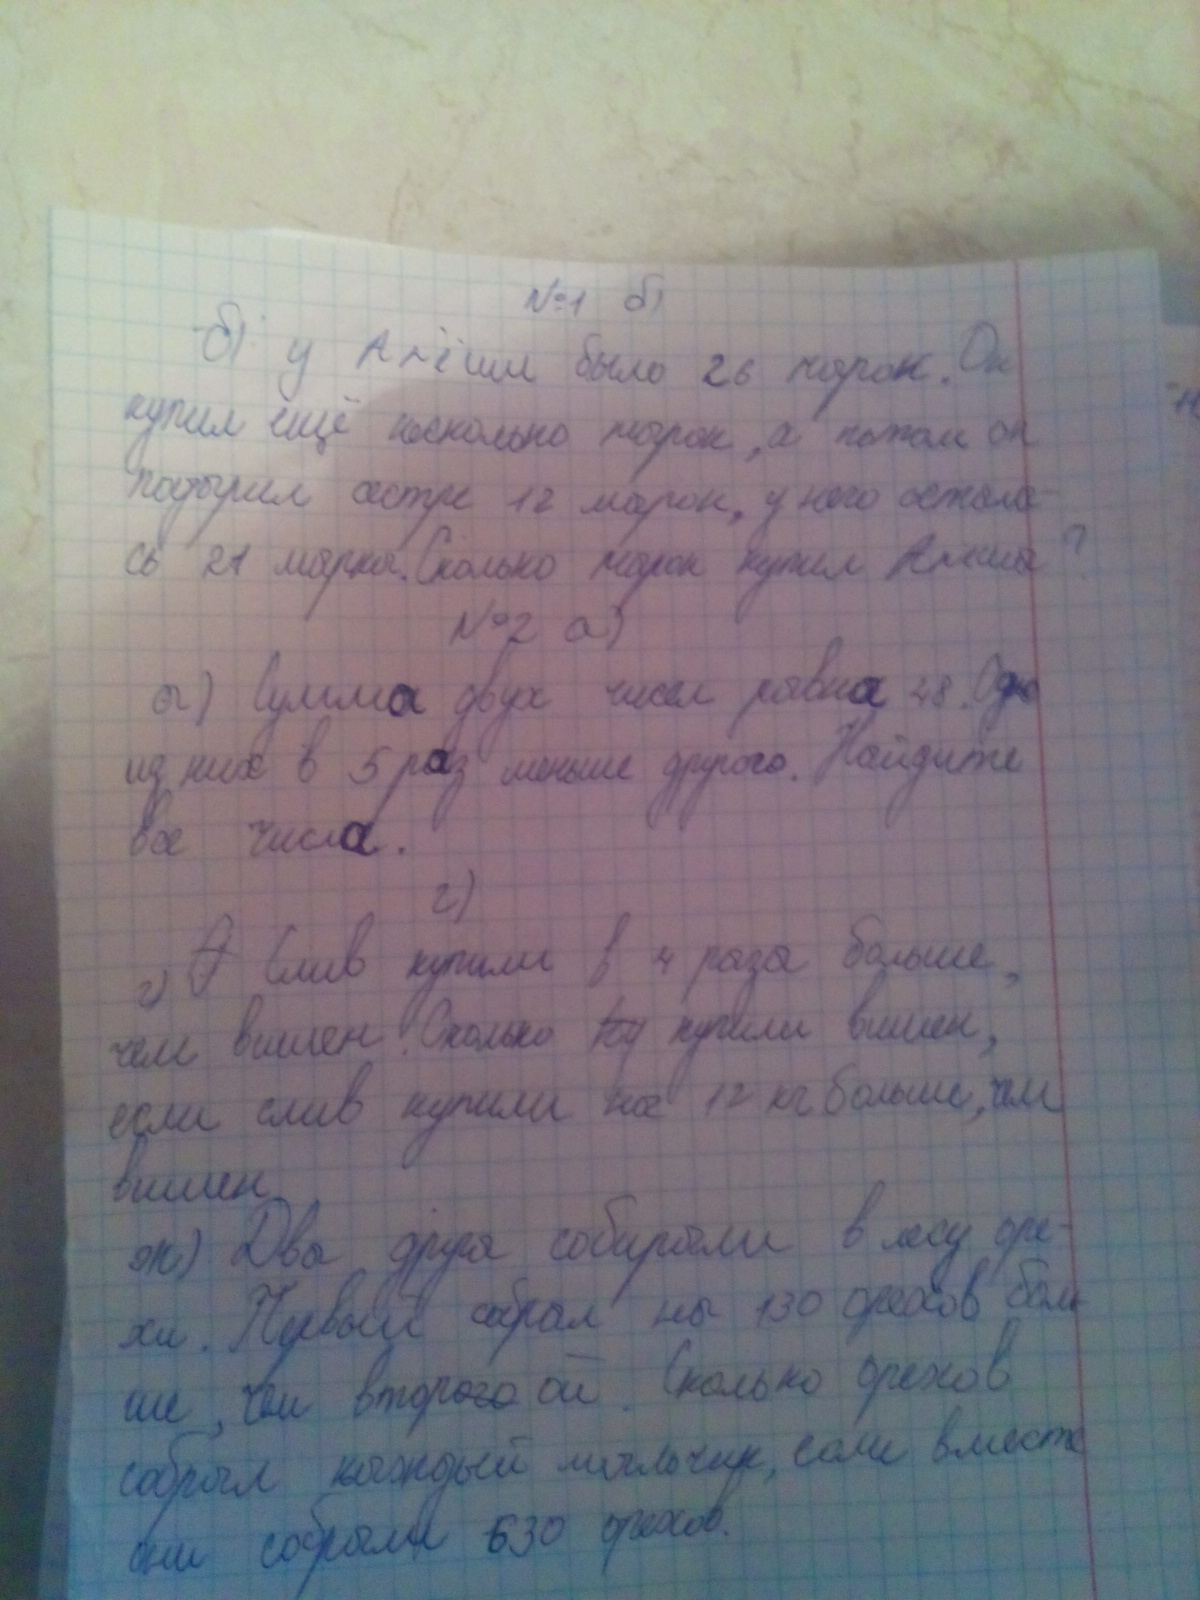 №1 б)
б) у Алёши было 26 марок. Он
купил ещё несколько марок, а потом он
подарил сестре 12 марок, у него остала-
сь 21 марка. Сколько марок купил Алёша?
№2 а)
а) Сумма двух чисел равна 48. Одно
из них в 5 раз меньше другого. Найдите
все числа.
г)
г) Слив купили в 4 раза больше,
чем вишен. Сколько купили вишен,
если слив купили на 12 кг больше, чем
вишен
ж) Два друга собирали в лесу оре-
хи. Первый собрал на 130 орехов боль
ше, чем второй. Сколько орехов
собрал каждый мальчик, если вместе
они собрали 630 орехов.